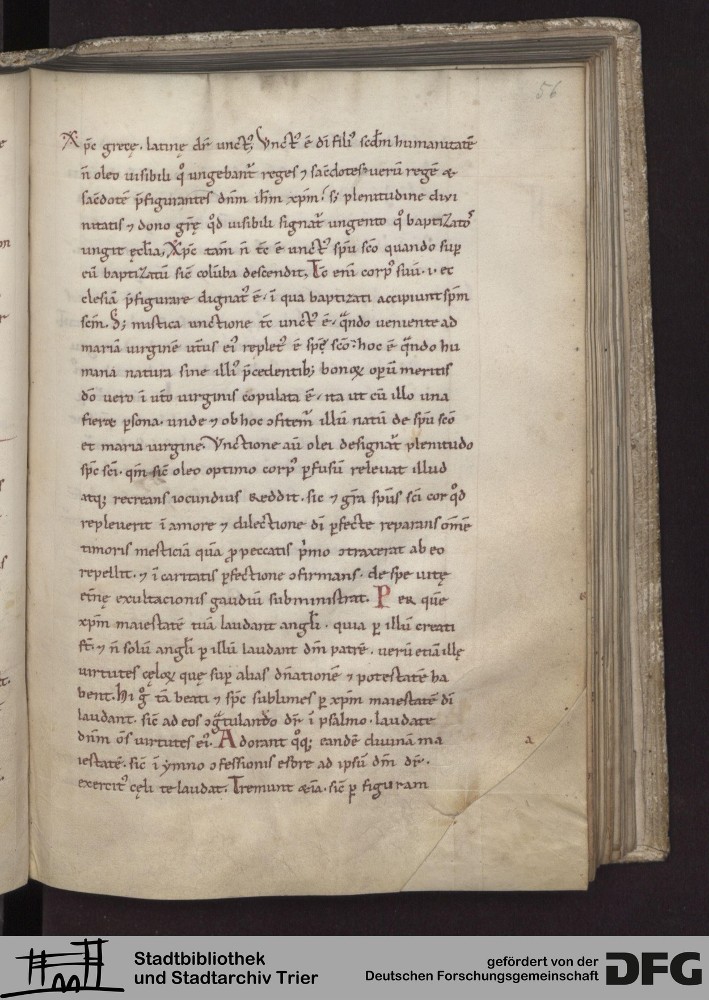 56
Xp̄c grecę. latinę dr̄ unctꝰ; Vnctꝰ ē dī filiꝰ scd̄m humanitatē
n̄ oleo uisibili qͦ ungebant᷑ reges ⁊ sac̄dotes. ueru᷑ regē &
sac̄dotē p̄figurantes dn̄m ih̄m xp̄m. s; plenitudine diui
nitatis ⁊ dono grę̄ qd̄ uisibili signat᷑ ungento qͦ baptizatoſ
ungit ęcl̄ia, Xp̄c tam̄ n̄ tc̄ ē unctꝰ sp̄u sc̄o quando sup̄
eū baptizatū sic̄ colūba descendit, Tc̄ eni᷑ corpꝰ suū. i. ec
clesiā p̄figurare dignatꝰ ē. ī qua baptizati accipiunt sp̄m
sc̄m. S; mistica unctione tc̄ unctꝰ ē. qn̄do ueniente ad
mariā uirginē ut̄us eiꝰ repletꝰ ē sp̄c̄ sc̄o. hoc ē qn̄do hu
mana natura sine illiꝰ p̄cedentib; bonoꝝ operū meritis
dō uero ī ut̄o uirginis copulata ē. ita ut cū illo una
fieret ꝑsona. unde ⁊ ob hoc ꝯfitem᷑ illū natū de sp̄u sc̄o
et maria uirgine. Vnctione aū olei designat᷑ plenitudo
sp̄c sc̄i. qm̄ sic̄ oleo optimo corpꝰ ꝑfusū releuat illud
atq; recreans iocundius reddit. sic ⁊ gr̄a sp̄us sc̄i cor qd̄
repleuerit ī amore ⁊ dilectione dī ꝑfecte reparans om̄e
timoris mesticiā quā ꝓ peccatis p̄mo ꝯtraxerat ab eo
repellit. ⁊ ī caritatis ꝑfectione ꝯfirmans. de spe uitę
et̄nę exultacionis gaudiū subministrat. Per quē
xp̄m maiestatē tuā laudant angl̄i. quia ꝑ illū creati
st̄. ⁊ n̄ solū angl̄i ꝑ illū laudant dm̄ patrē. uerū etiā illę
uirtutes cęloꝝ quę sup̄ alias dn̄ationē ⁊ potestatē ha
bent. Hi gͦ tā beati ⁊ sp̄c sublimes ꝑ xp̄m maiestatē dī
laudant. sic̄ ad eos ꝯgͣtulando dr̄ ī psalmo. laudate
dn̄m om̄s uirtutes eiꝰ. Adorant qͦq; eandē diuinā ma
iestatē. sic̄ ī ymno ꝯfessionis ad ipsū dm̄ dr̄.
exercitꝰ cęli te laudat. Tremunt &iā. sic̄ ꝑ figuram
a
Stadtbibliothek
und Stadtarchiv Trier
gefördert von der
Deutschen Forschungsgemeinschaft
DFG